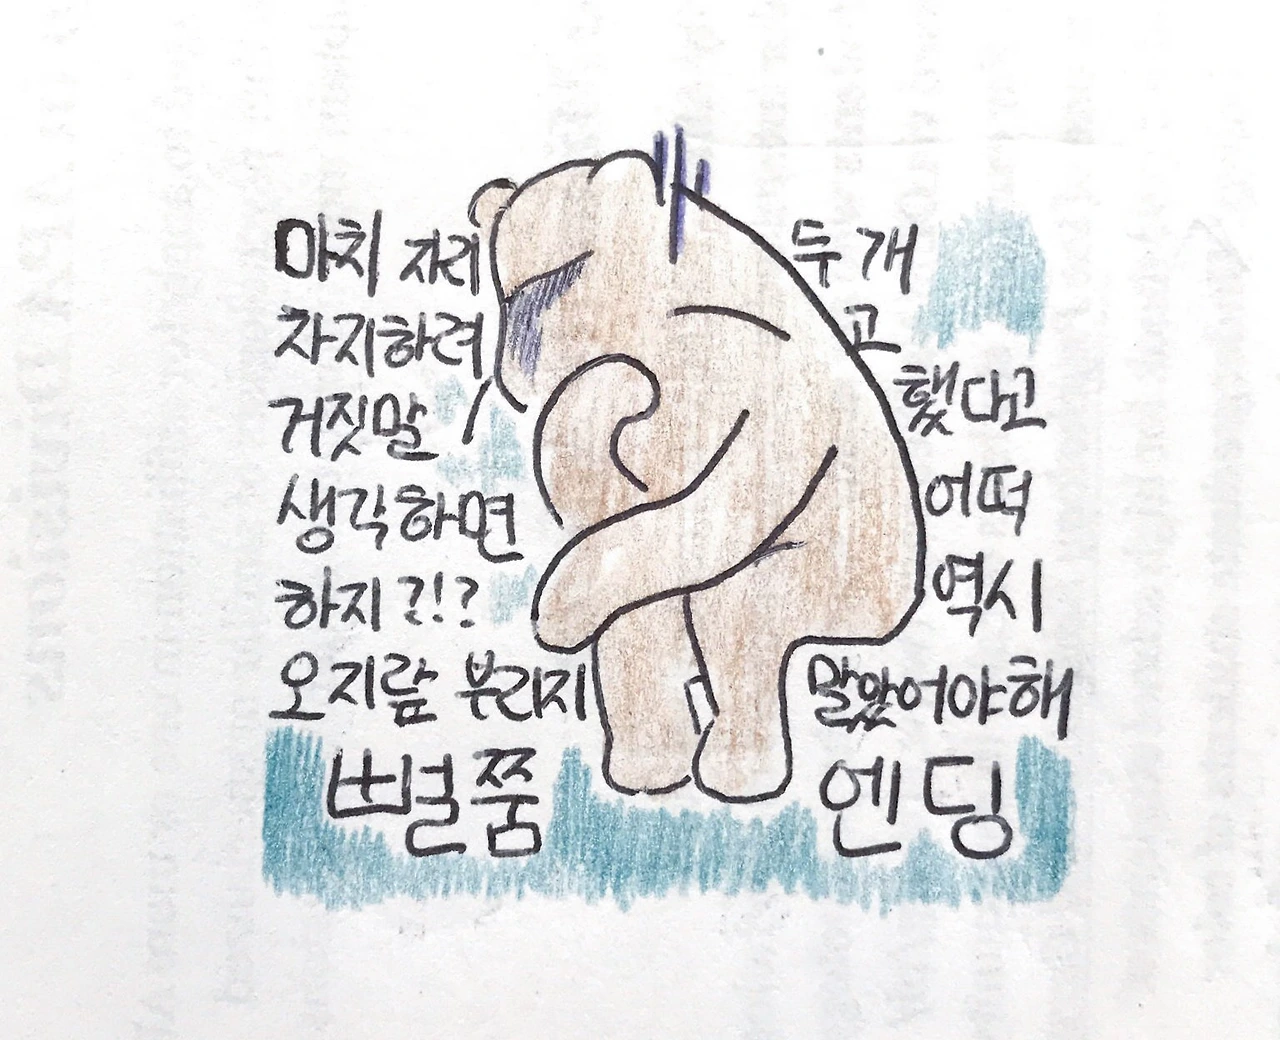 마치 자리 두 개
차지하려고
거짓말 했다고
생각하면 어떡
하지?!? 역시
오지랖 부리지 말았어야해
뻘쭘 엔딩